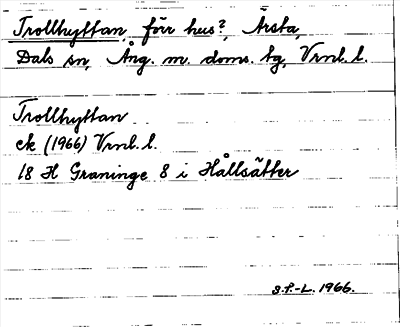 Trollhyttan, förr hus?, Ärsta,
Dals sn, Ång. m. doms. tg, Vrnl. l.
Trollhyttan
ek (1966) Vrnl. l.
18 H Graninge 8 i Hållsätter
S.F.-L. 1966.